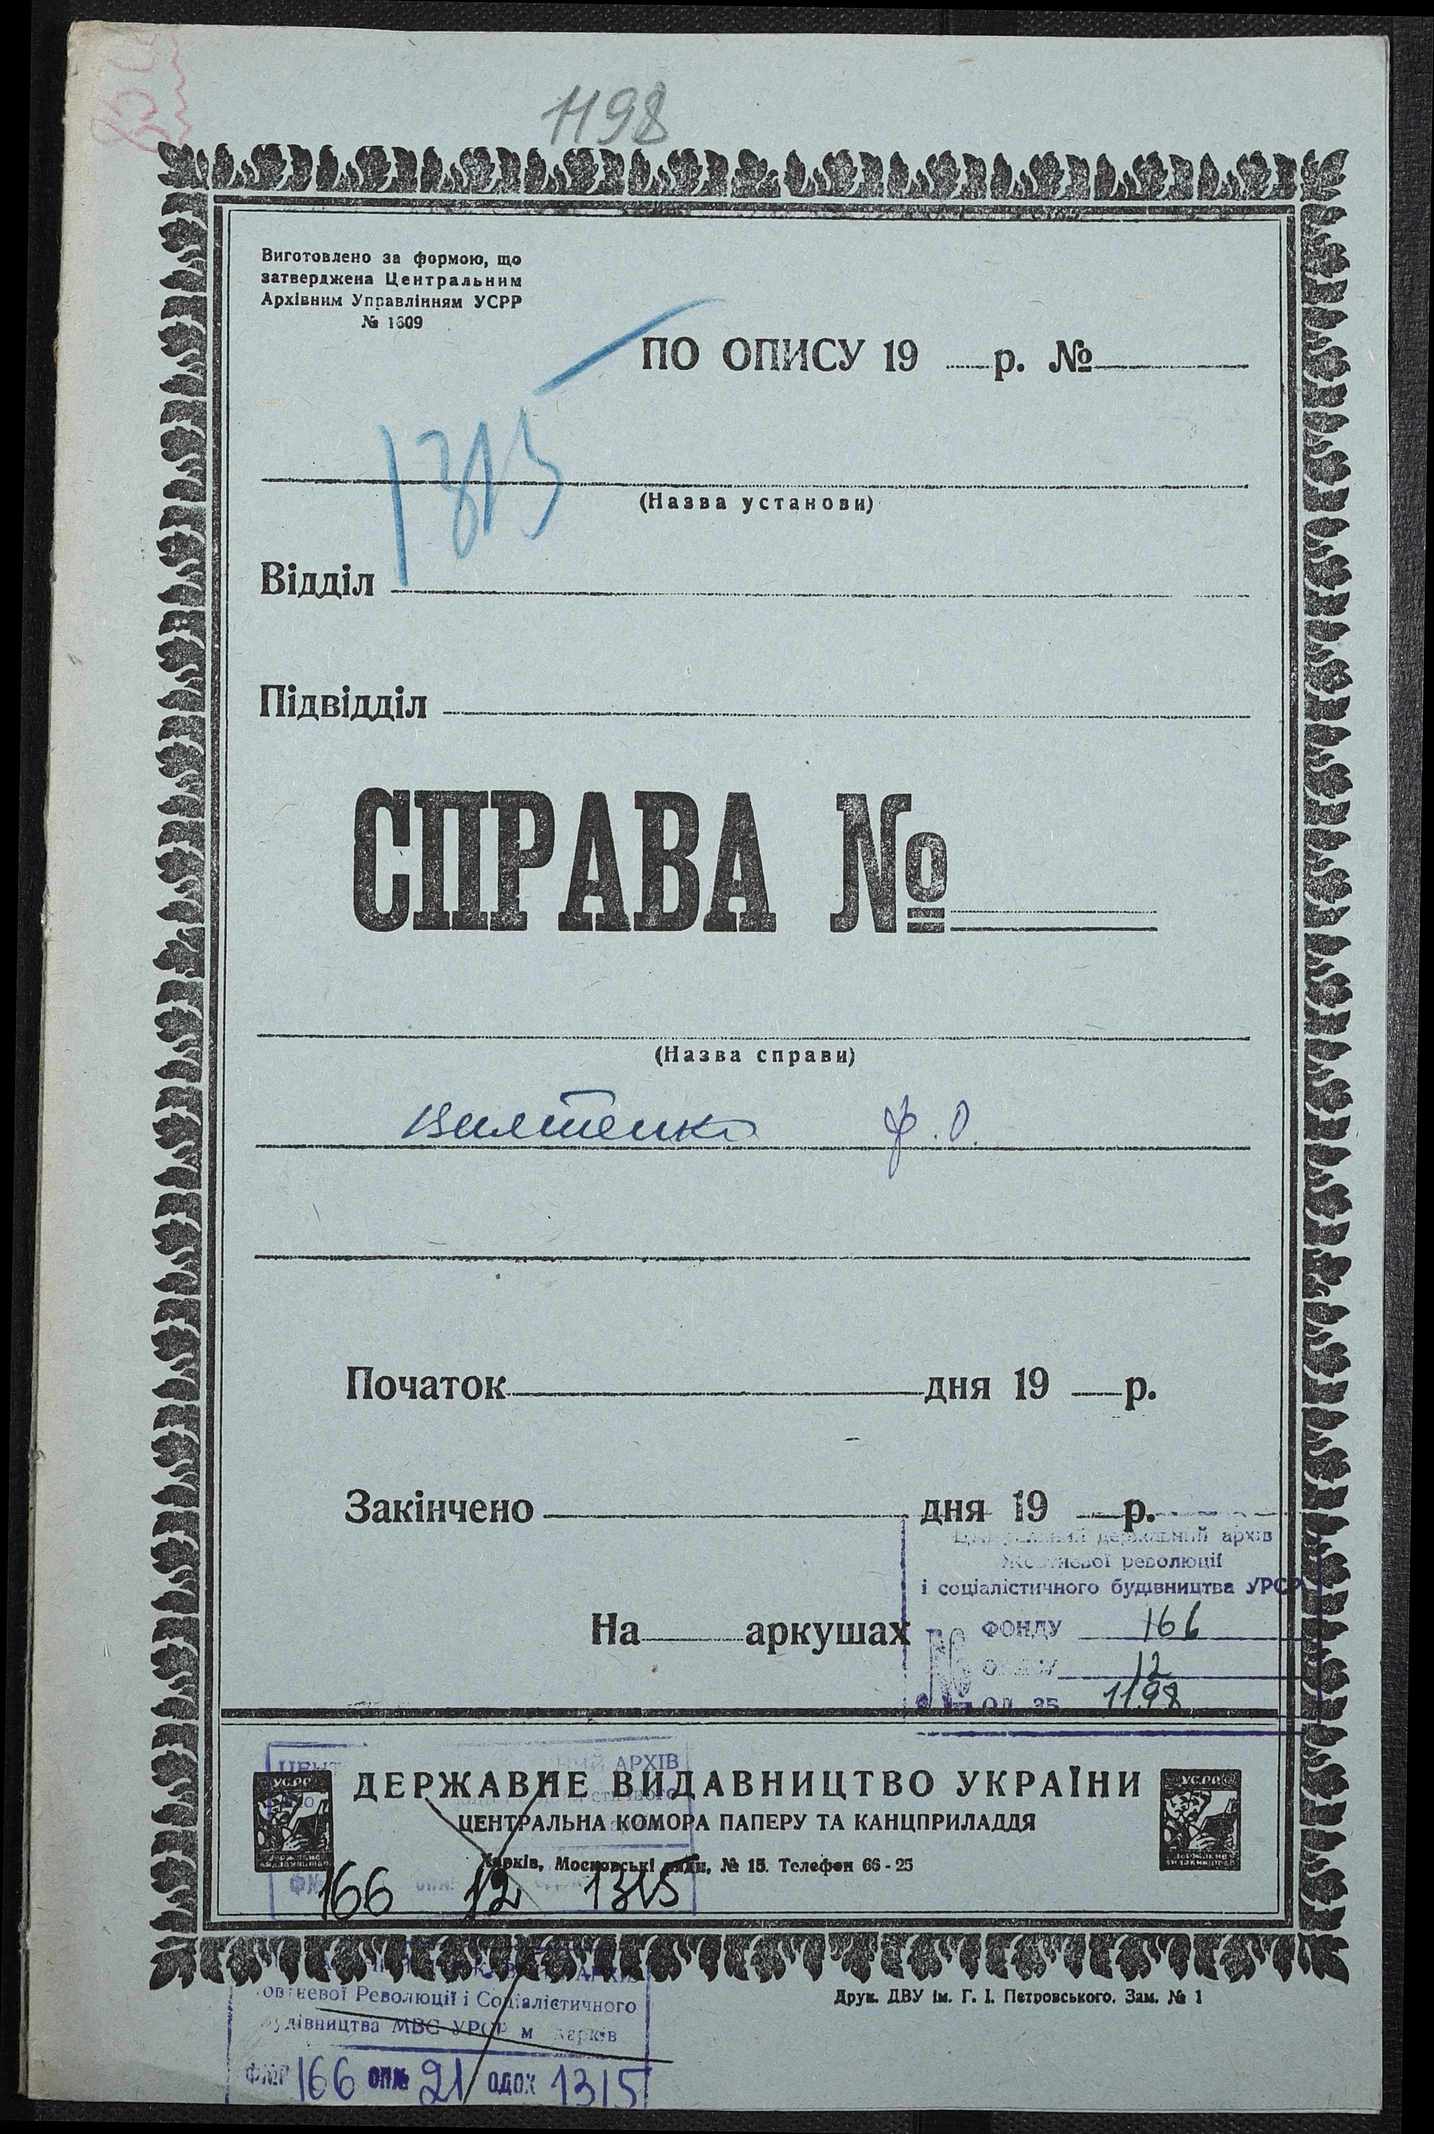 1198
Виготовлено за формою, що
затверджена Центральним
Архівним Управлінням УСРР
№ 1609
ПО ОПИСУ 19 р. №
1315
(Назва установи)
Відділ
Підвідділ
СПРАВА №
(Назва справи)
Ф. О.
Початок дня 19 р.
Закінчено дня 19 р.
На аркушах
державний архів
Жовтневої революції
і соціалістичного будівництва УРСР
№ ФОНДУ 166
ОПИСУ 12
ОД. ЗБ. 1198
АРХІВ
УСРР ДЕРЖАВНЕ ВИДАВНИЦТВО УКРАЇНИ УСРР
ЦЕНТРАЛЬНА КОМОРА ПАПЕРУ ТА КАНЦПРИЛАДДЯ
Харків, Московські ряди, № 15. Телефон 66-25
166 12 1315
Друк. ДВУ ім. Г. І. Петровського. Зам. № 1
Революції і Соціалістичного
будівництва МВС УРСР м Харків
Ф№ 166 ОП№ 21 ОДОХ 1315